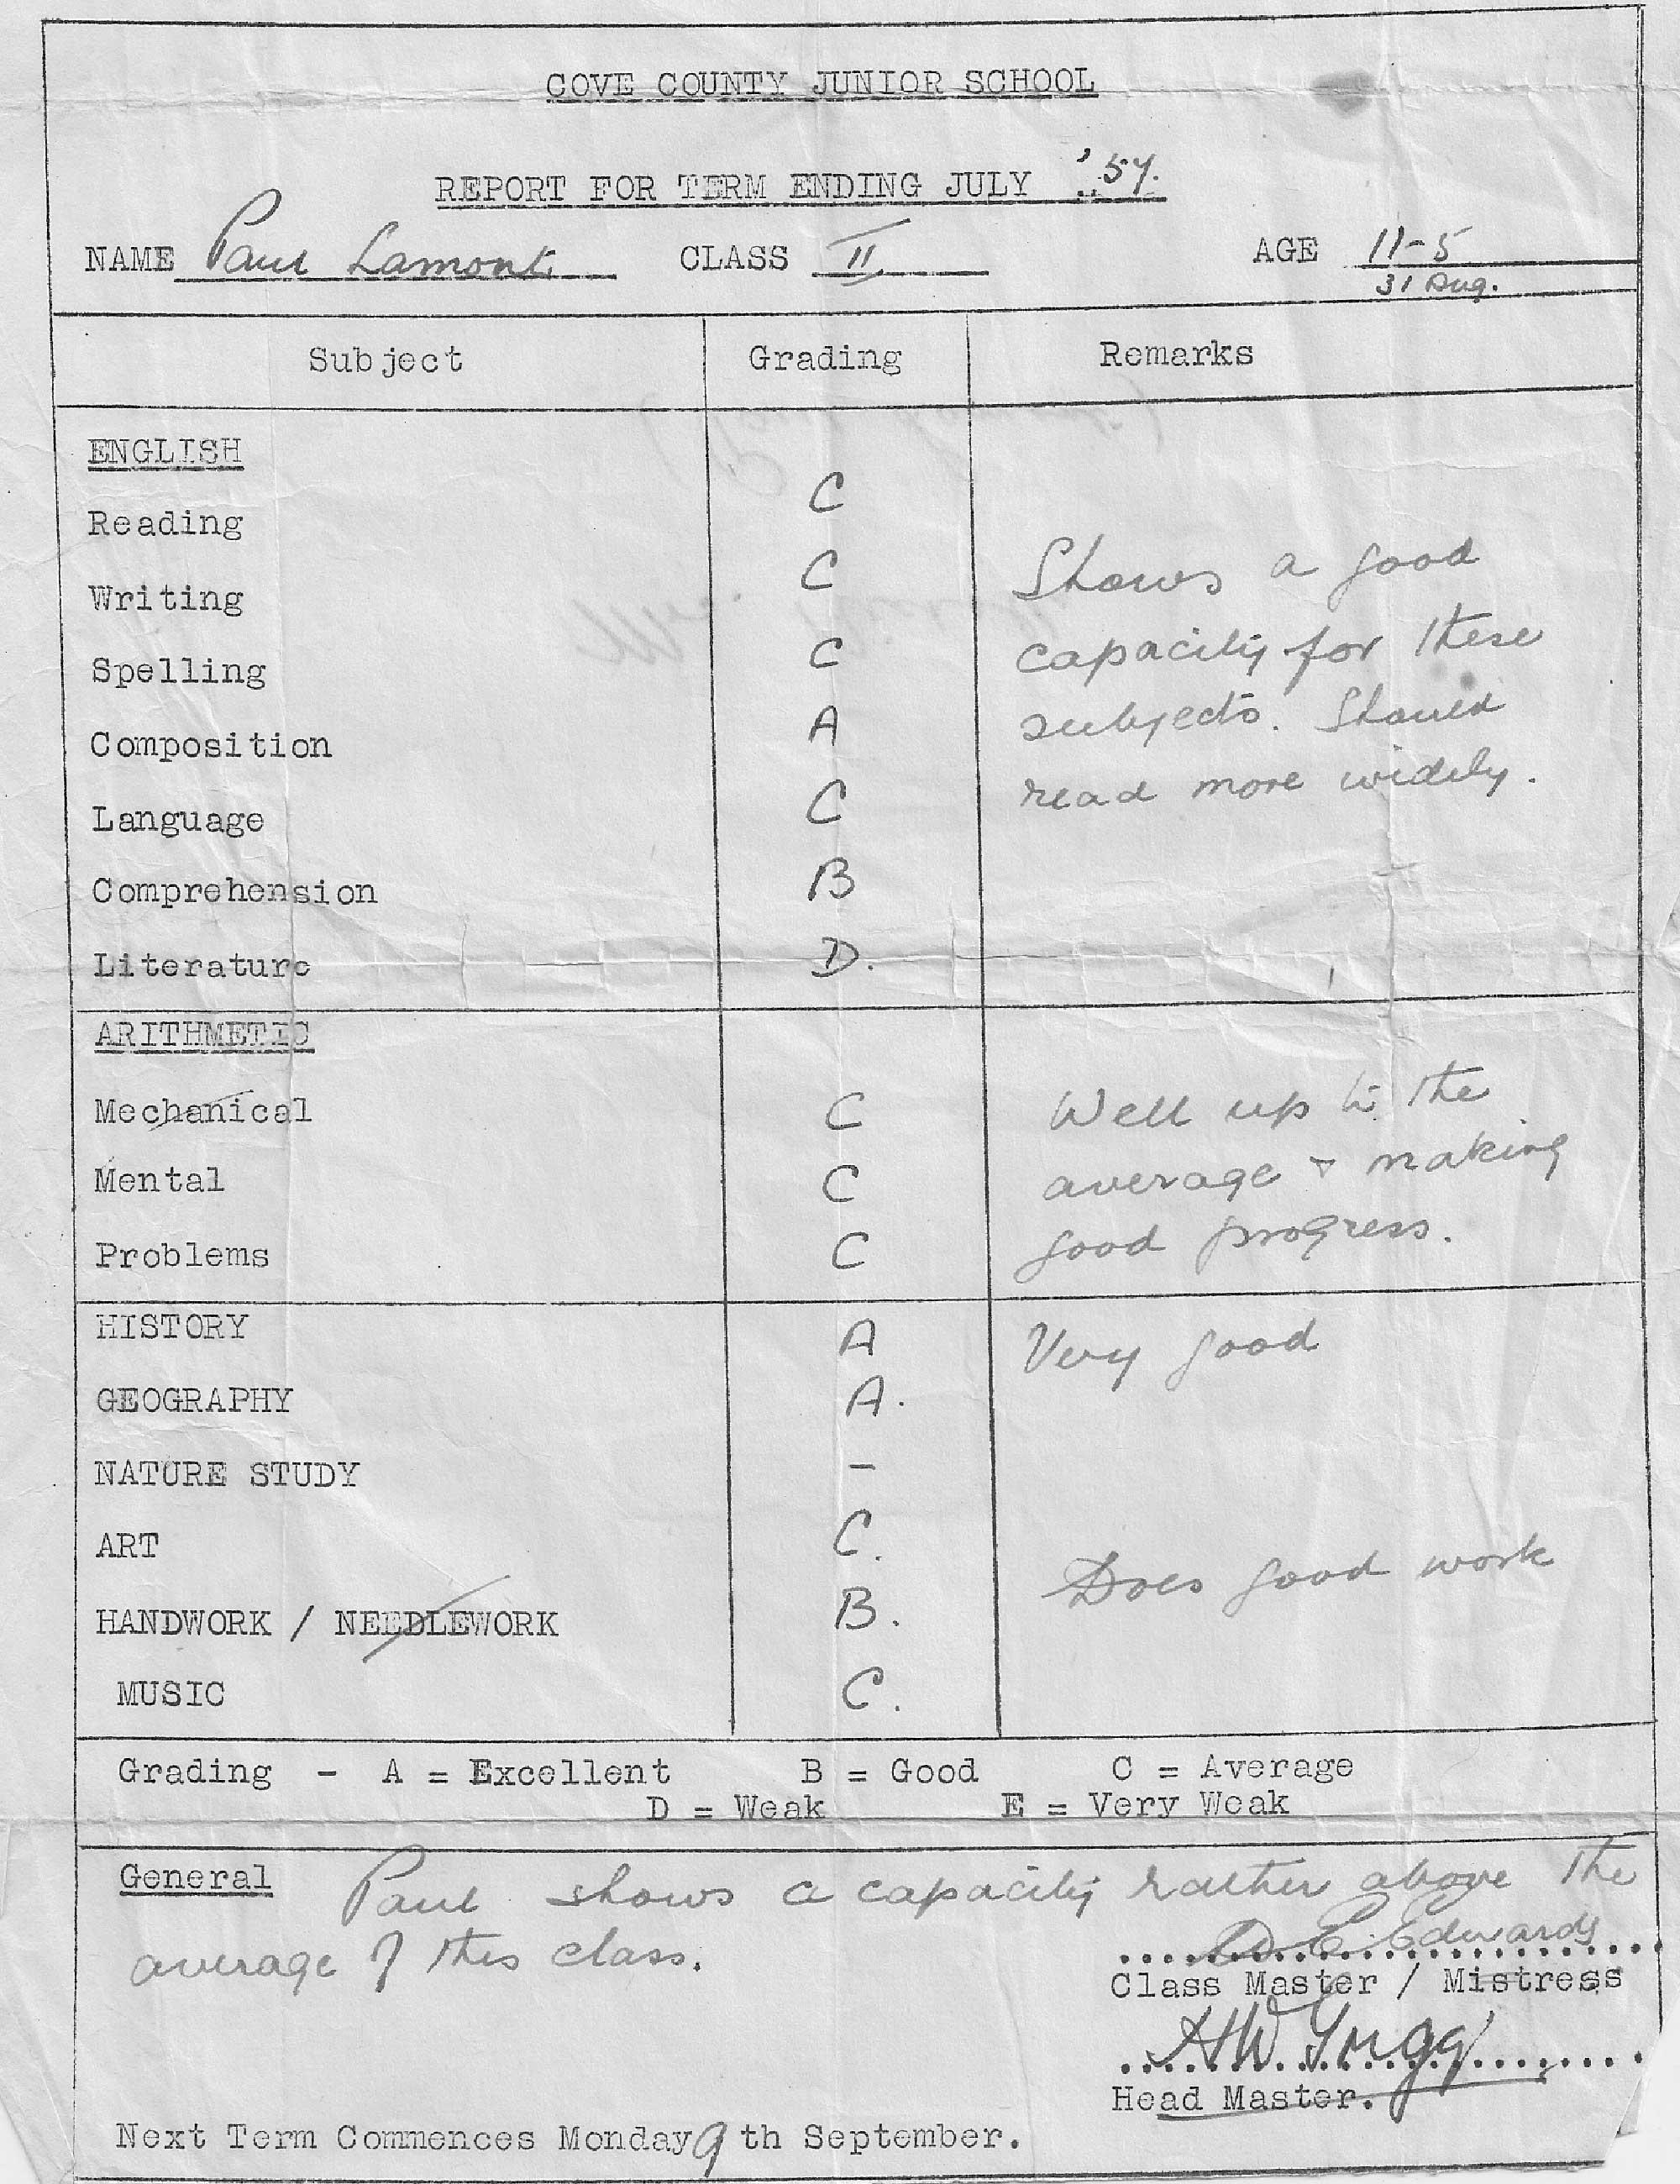 COVE COUNTY JUNIOR SCHOOL
REPORT FOR TERM ENDING JULY '57.
NAME Paul Lamont CLASS II AGE 11-5
31 Aug.
Subject Grading Remarks
ENGLISH
Reading C
Writing C Shows a good
Spelling C capacity for these
Composition A subjects. Should
Language C read more widely.
Comprehension B
Literature D.
ARITHMETIC
Mechanical C Well up to the
Mental C average + making
Problems C good progress.
HISTORY A Very good
GEOGRAPHY A.
NATURE STUDY –
ART C. Does good work
HANDWORK / NEEDLEWORK B.
MUSIC C.
Grading - A = Excellent B = Good C = Average
D = Weak E = Very Weak
General Paul shows a capacity rather above the
average of this class.
Edwards
Class Master / Mistress
Head Master.
Next Term Commences Monday 9 th September.